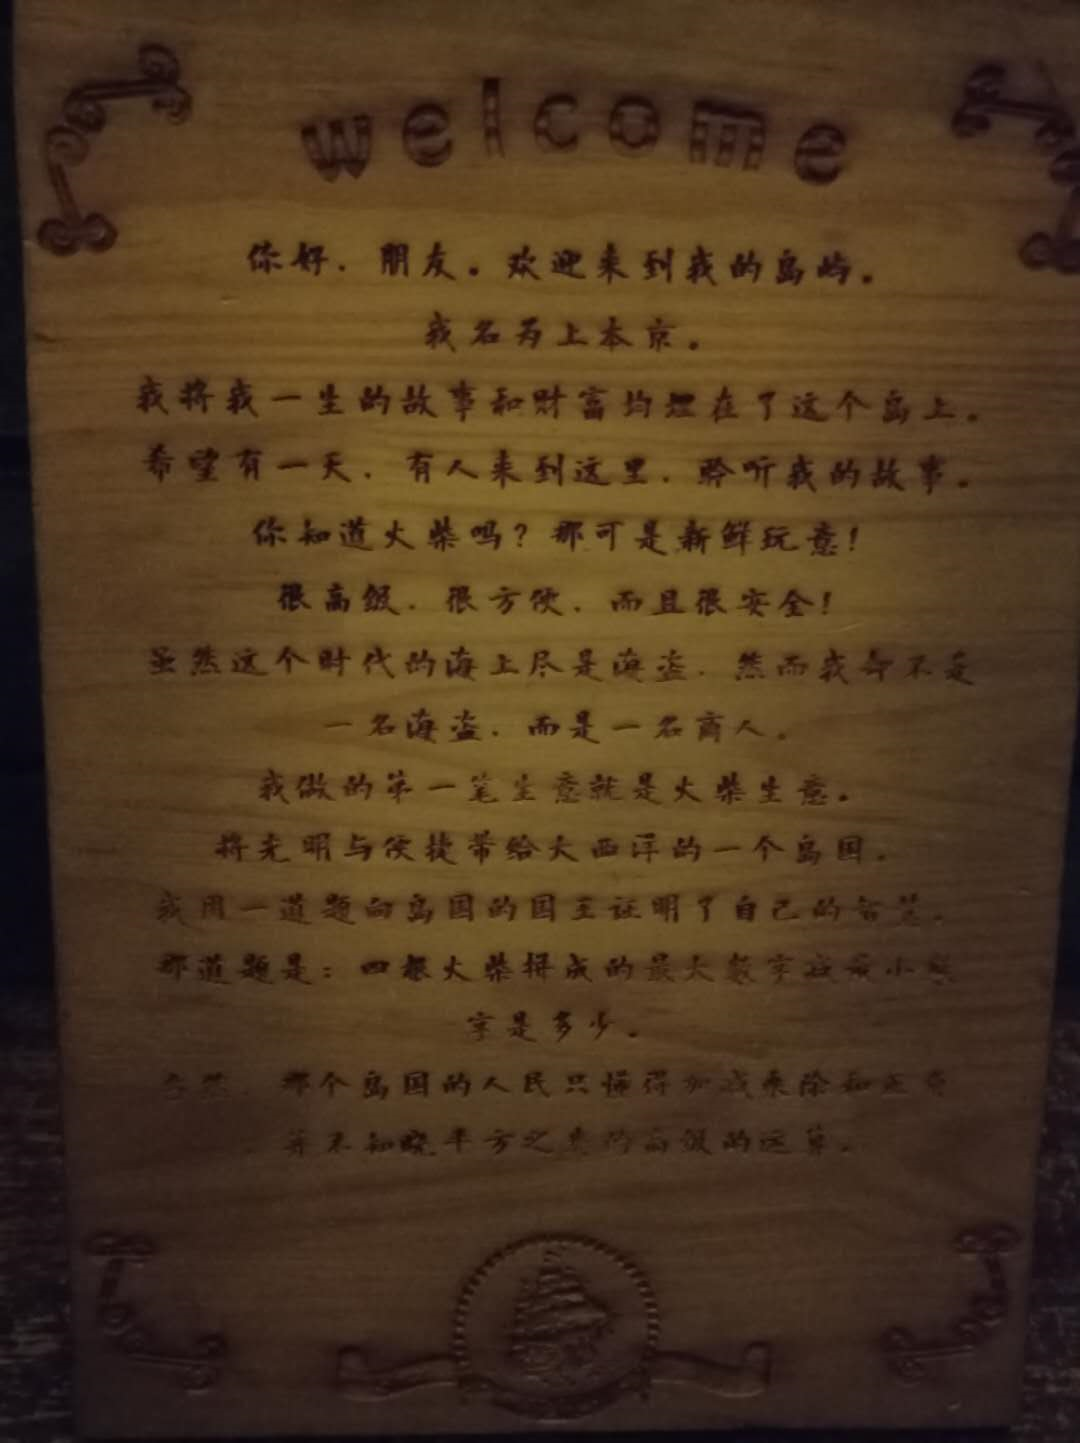 welcome
你好，朋友。欢迎来到我的岛屿。
我名为上本京。
我将我一生的故事和财富均埋在了这个岛上。
希望有一天，有人来到这里，聆听我的故事。
你知道火柴吗？那可是新鲜玩意！
很高级，很方便，而且很安全！
虽然这个时代的海上尽是海盗，然而我却不是
一名海盗，而是一名商人。
我做的第一笔生意就是火柴生意。
将光明与便捷带给大西洋的一个岛国。
我用一道题向岛国的国王证明了自己的智慧。
那道题是：四根火柴拼成的最大数字减最小数
字是多少。
当然，那个岛国的人民只懂得加减乘除和正负
并不知晓平方之类的高级的运算。